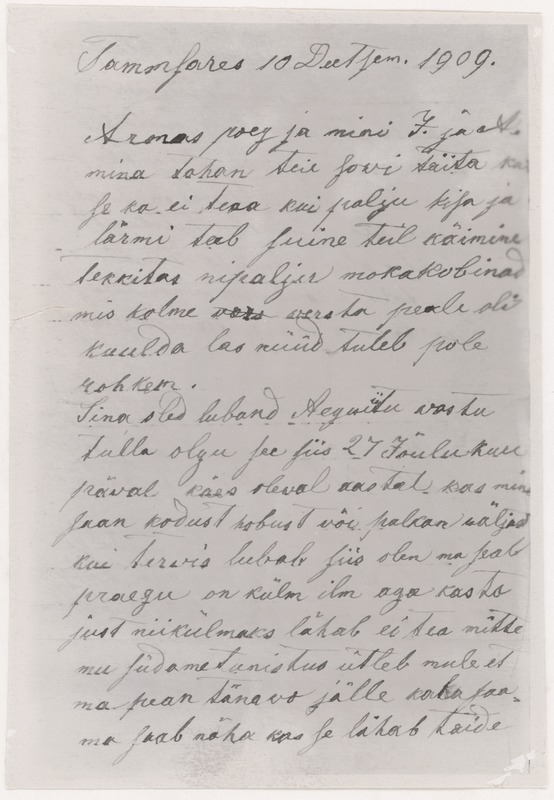 Tammsares 10 Deetsem. 1909.
Armas poeg ja mini J. ja A.
mina tahan teie sowi täita ka
se ka ei tea kui palju kisa ja
lärmi teeb suine teil käimine
tekkitas nipaljer mokakobinad
mis kolme wers wersta peale oli
kuulda las nüüd tuleb pole
rohkem.
Sina oled luband Aegwiitu wastu
tulla olgu see siis 27 Jõulukuu
päval käes olewal aastal kas mina
saan kodust hobust või palkan wäljast
kui terwis lubab siis olen ma seal
praegu on külm ilm aga kas ta
just niikülmaks lähab ei tea mitte
mu südametunistus ütleb mule et
ma pean tänawo jälle kala saa-
ma saab näha kas se lähab täide